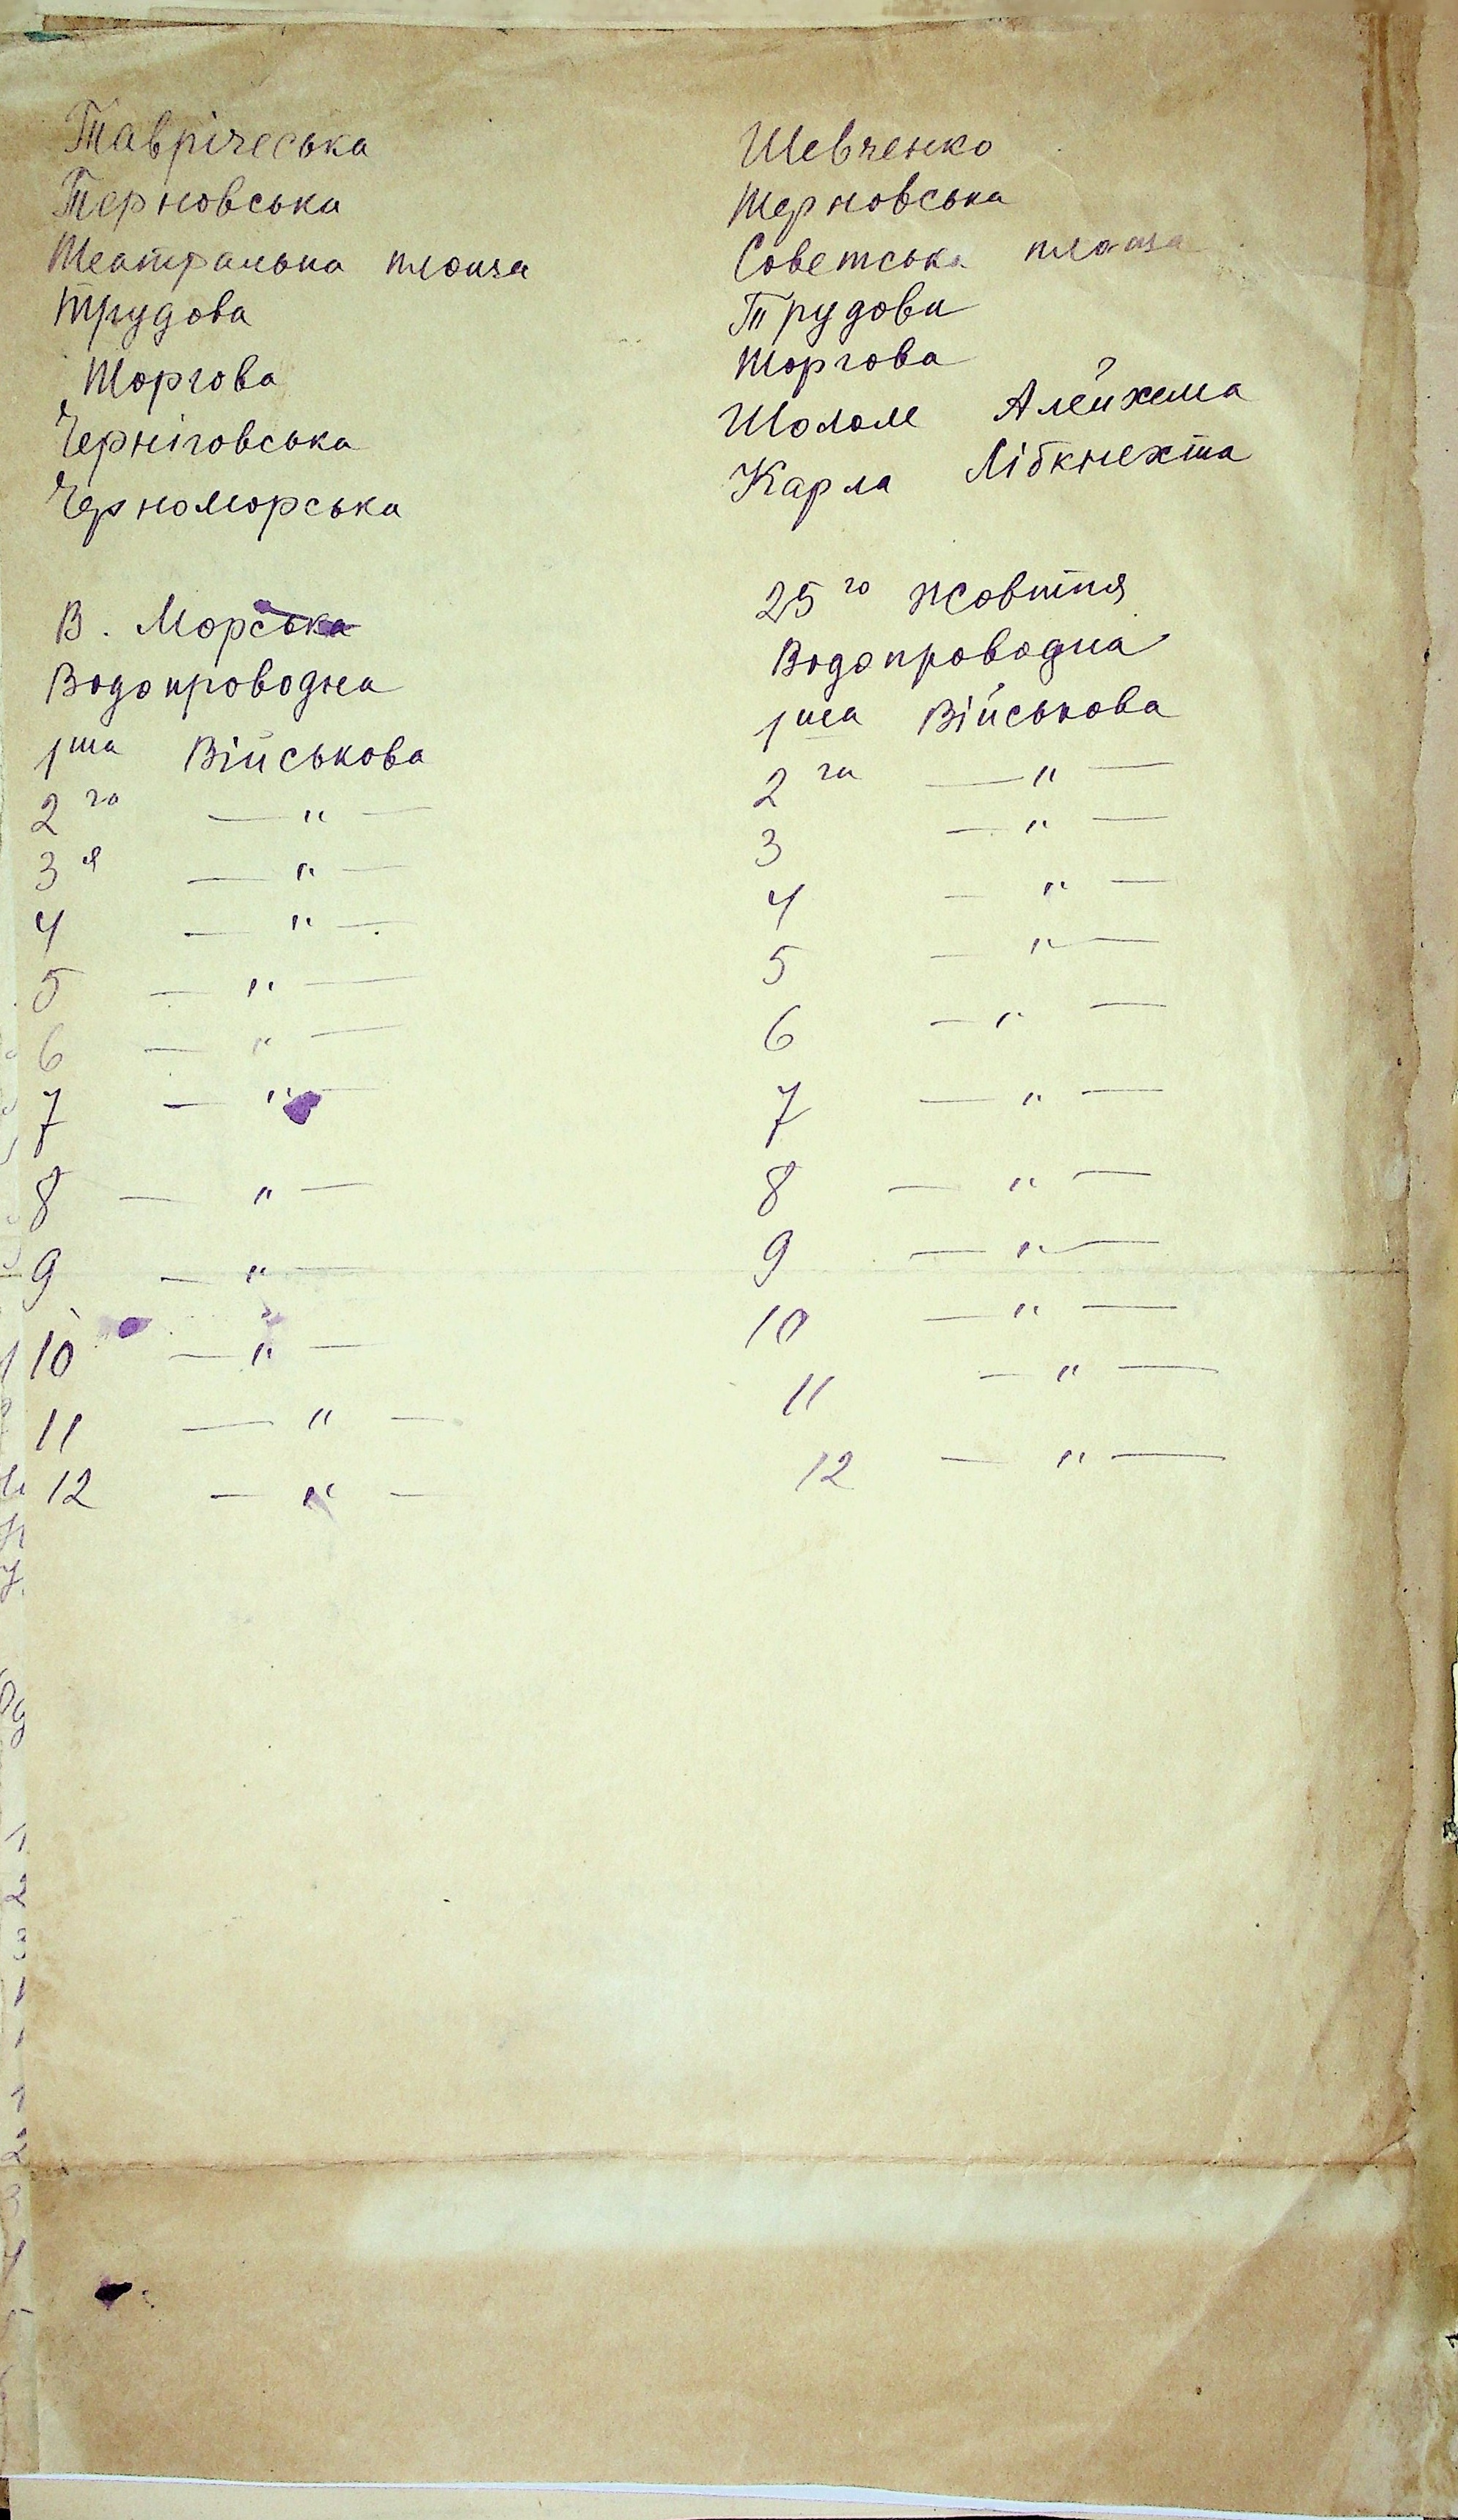 Таврічеська Шевченко
Терновська Терновська
Театральна площа Советська площа
Трудова Трудова
Торгова Торгова
Черніговська Шолом Алейхема
Черноморська Карла Лібкнехта
В. Морська 25го Жовтня
Водопроводна Водопроводна
1ша Військова 1ша Військова
2га — " — 2га — " —
3я — " — 3 — " —
4 — " — 4 — " —
5 — " — 5 — " —
6 — " — 6 — " —
7 — " — 7 — " —
8 — " — 8 — " —
9 — " — 9 — " —
10 — " — 10 — " —
11 — " — 11 — " —
12 — " — 12 — " —